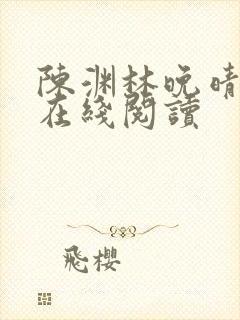 陳渊林晚晴
在綫閱讀
飛櫻